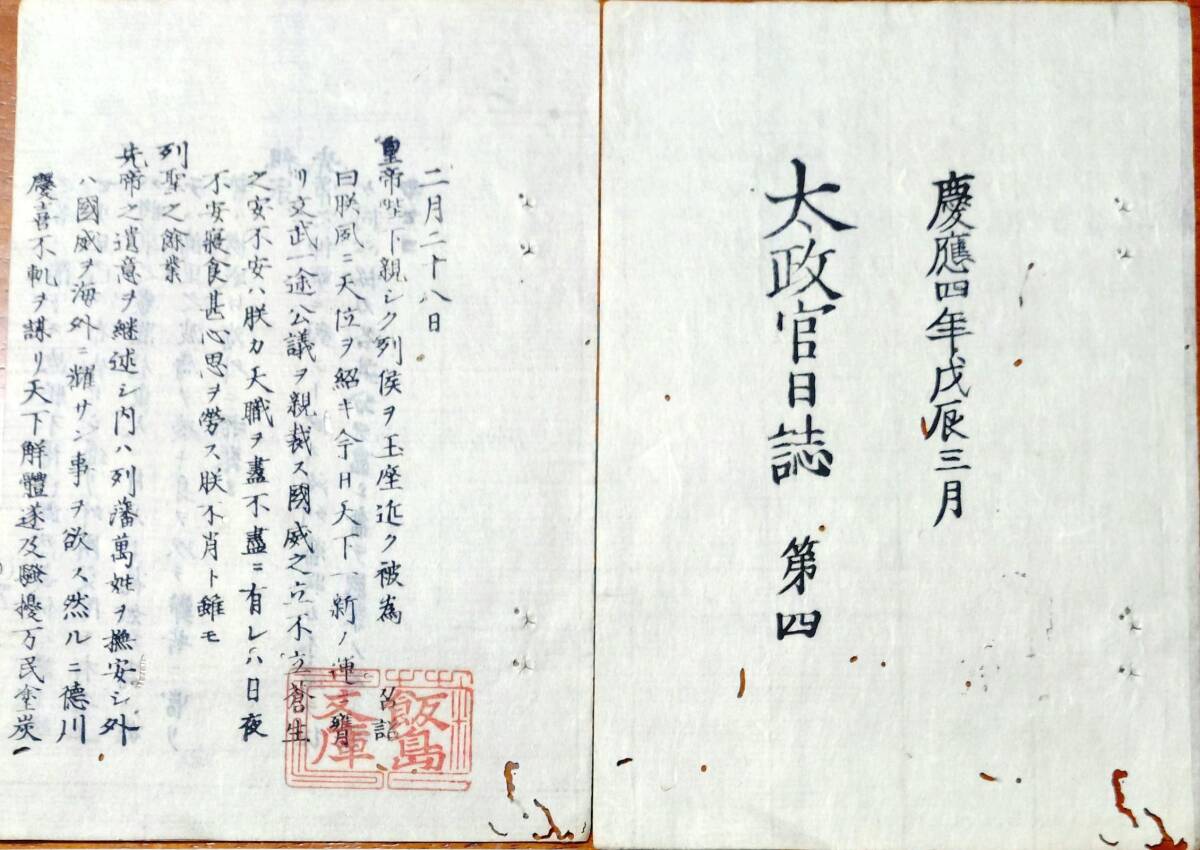 慶應四年戊辰三月
太政官日誌 第四
二月二十八日
皇帝陛下親シク列侯ヲ玉座近ク被為 召詔
曰朕夙ニ天位ヲ紹キ今日天下一新ノ運ニ膺
リ文武一途公議ヲ親裁ス國威之立不立蒼生
之安不安ハ朕カ天職ヲ盡不盡ニ有レハ日夜
不安寢食甚心思ヲ勞ス朕不肖ト雖モ
列聖之餘業
先帝之遺意ヲ継述シ内ハ列藩萬姓ヲ撫安シ外
ハ國威ヲ海外ニ耀サン事ヲ欲ス然ルニ德川
慶喜不軌ヲ謀リ天下解體遂及騒擾万民塗炭
飯島文庫